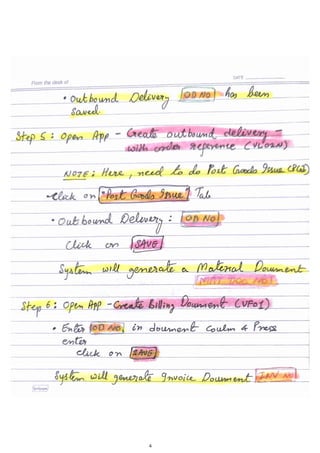 DATE
From the desk of
• Outbound Delivery OD NO has been
Saved.
Step 5 : Open App - Create outbound delivery -
with order reference (VL01N)
NOTE : Here, need to do Post Goods Issue (PGI)
Click on "Post Goods Issue" Tab
• Outbound Delivery : OD NO
Click on SAVE
System will generate a Material Document
MAT DOC NO
Step 6 : Open App - Create Billing Document (VF01)
• Enter OD NO, in doument coulm & Press
enter
Click on SAVE
System will generate Invoice Document INV NO
4